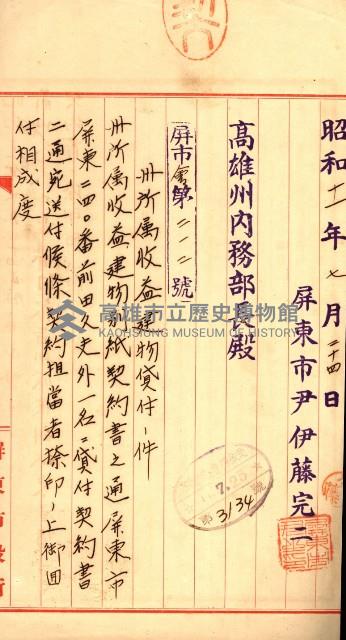 昭和十一年七月二十四日
屏東市尹伊藤完二
高雄州内務部長殿
屏市會第二一二號
州所属收益建物貸付ノ件
州所属收益建物別紙契約書之通屏東市
屏東二四〇番前田久吉外一名ニ貸付契約書
二通宛送付候條契約担當者捺印ノ上御回
付相成度
高雄市立歷史博物館
KAOHSIUNG MUSEUM OF HISTORY
7.25
第3134號
屏東市役所